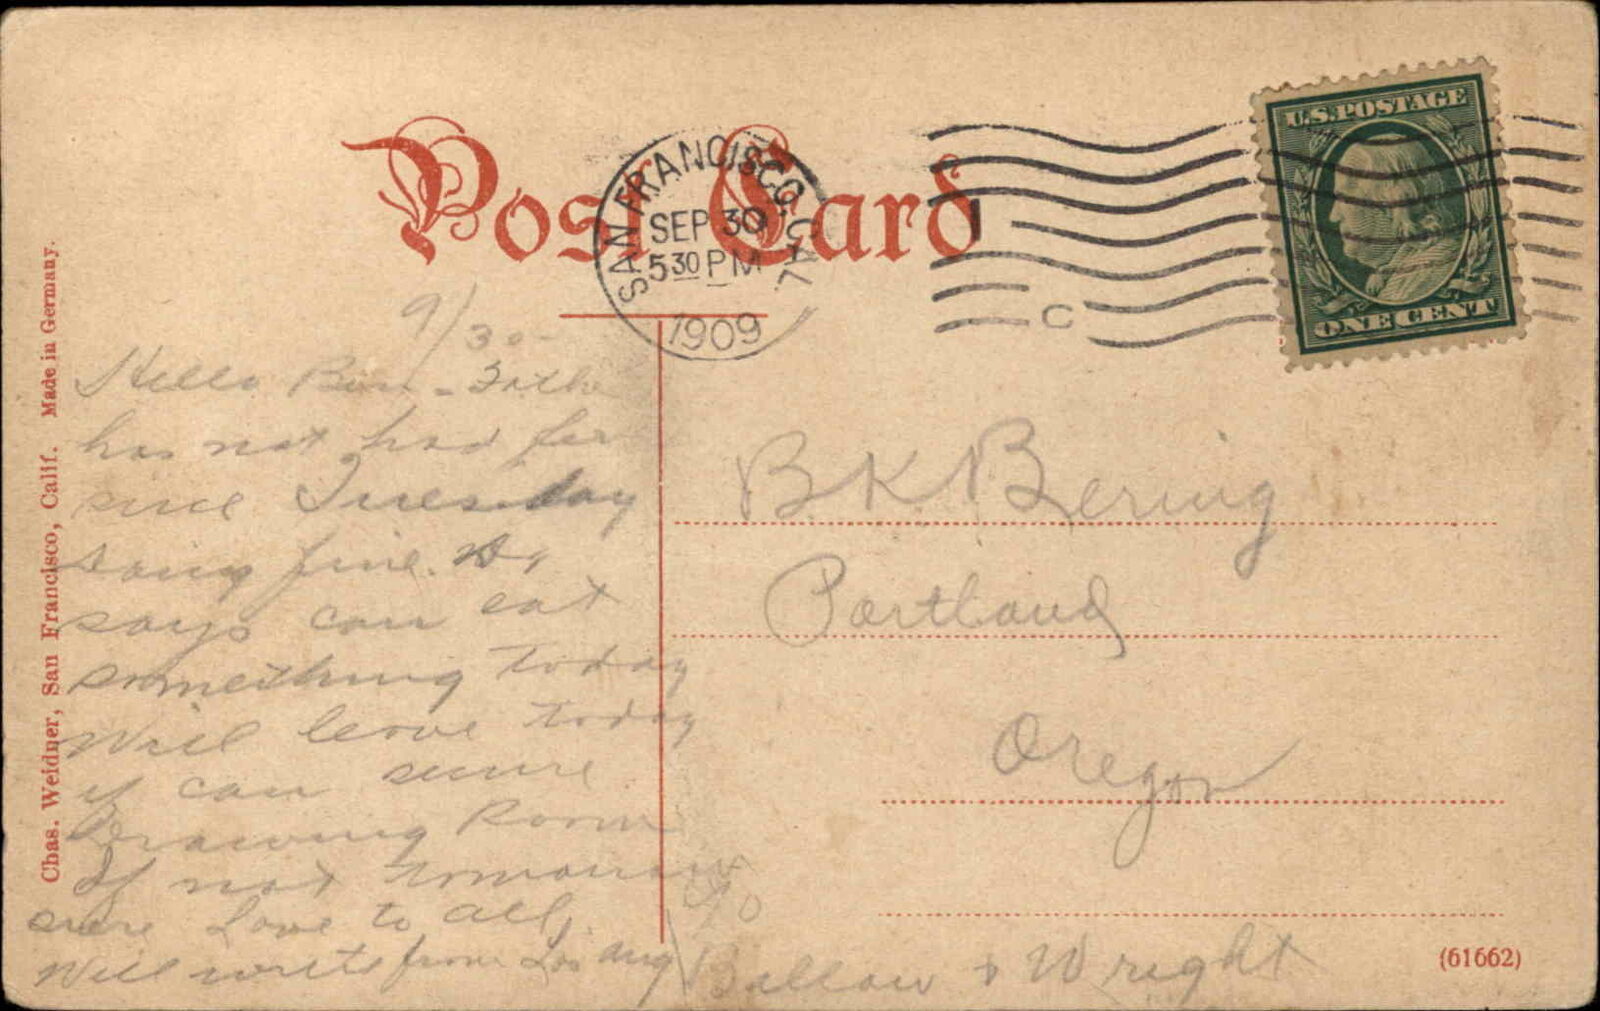 Post Card
SAN FRANCISCO, CAL.
SEP 30
5 30 PM
1909
C
U.S. POSTAGE
ONE CENT
Chas. Weidner, San Francisco, Calif. Made in Germany.
9/30-
Hello
has not had
since Tuesday
fine.
says can eat
something today
Will leave today
if can secure
Drawing Room
If not tomorrow
sure Love to all,
Will write from Los Ang
B K Bering
Portland
Oregon
c/o
Ballou & Wright
(61662)